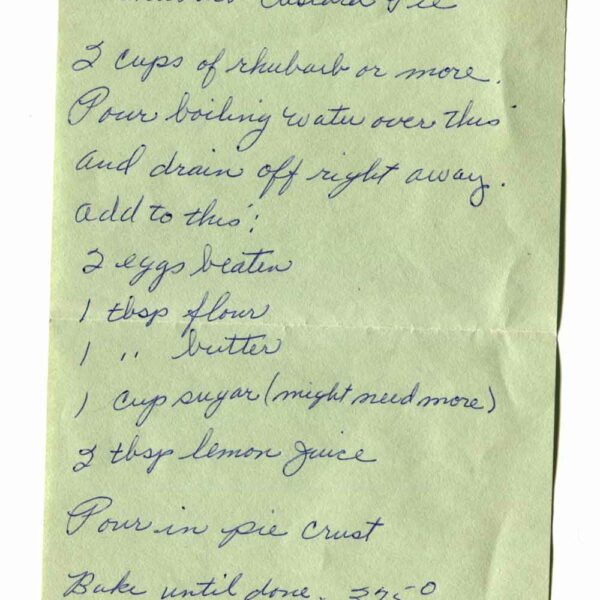 Custard Pie
2 cups of rhubarb or more.
Pour boiling water over this
and drain off right away.
add to this:
2 eggs beaten
1 tbsp flour
1 " butter
1 cup sugar (might need more)
2 tbsp lemon juice
Pour in pie crust
Bake until done.